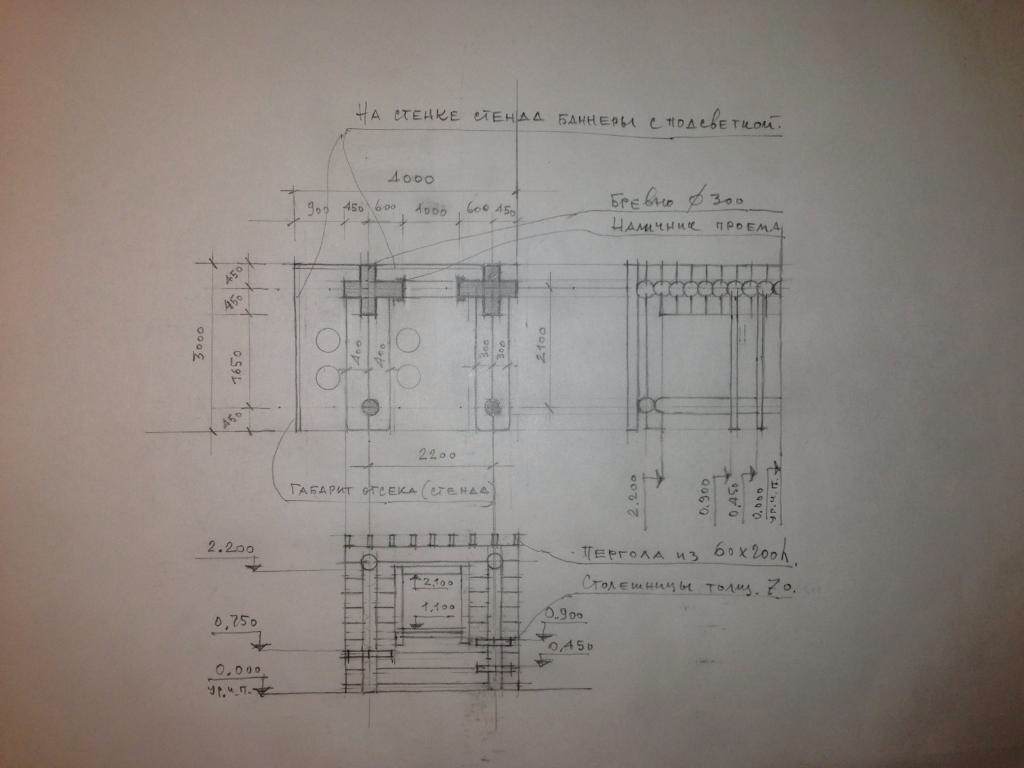 НА СТЕНКЕ СТЕНДА БАННЕРЫ С ПОДСВЕТКОЙ.
4000
БРЕВНО Ø 300
900 450 600 1000 600 450
НАЛИЧНИК ПРОЕМА
450
450
3000
1650
450
400 400
300 300
2100
2200
ГАБАРИТ ОТСЕКА (СТЕНДА)
2.200
0.900
0.450
0.000
УР.Ч.П.
2.200
ПЕРГОЛА ИЗ 60х200h.
СТОЛЕШНИЦЫ ТОЛЩ. 70.
2.100
1.100
0.750
0.900
0.450
0.000
УР.Ч.П.